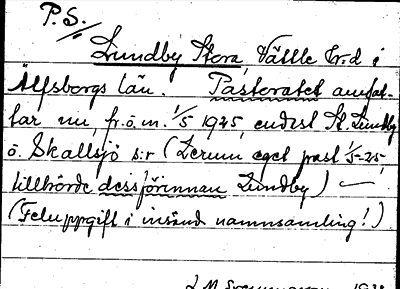 P.S.
Lundby Stora, Vättle hrd i
Älfsborgs län. Pastoratet omfat-
tar nu, fr.o.m. 1/5 1925, endast St. Lundby
o. Skallsjö s:r (Lerum eget past 1/5-25,
tillhörde dessförinnan Lundby) —
(Feluppgift i insänd namnsamling!)